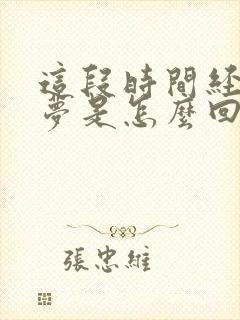 這段時間経
夢是怎麼回
張忠維